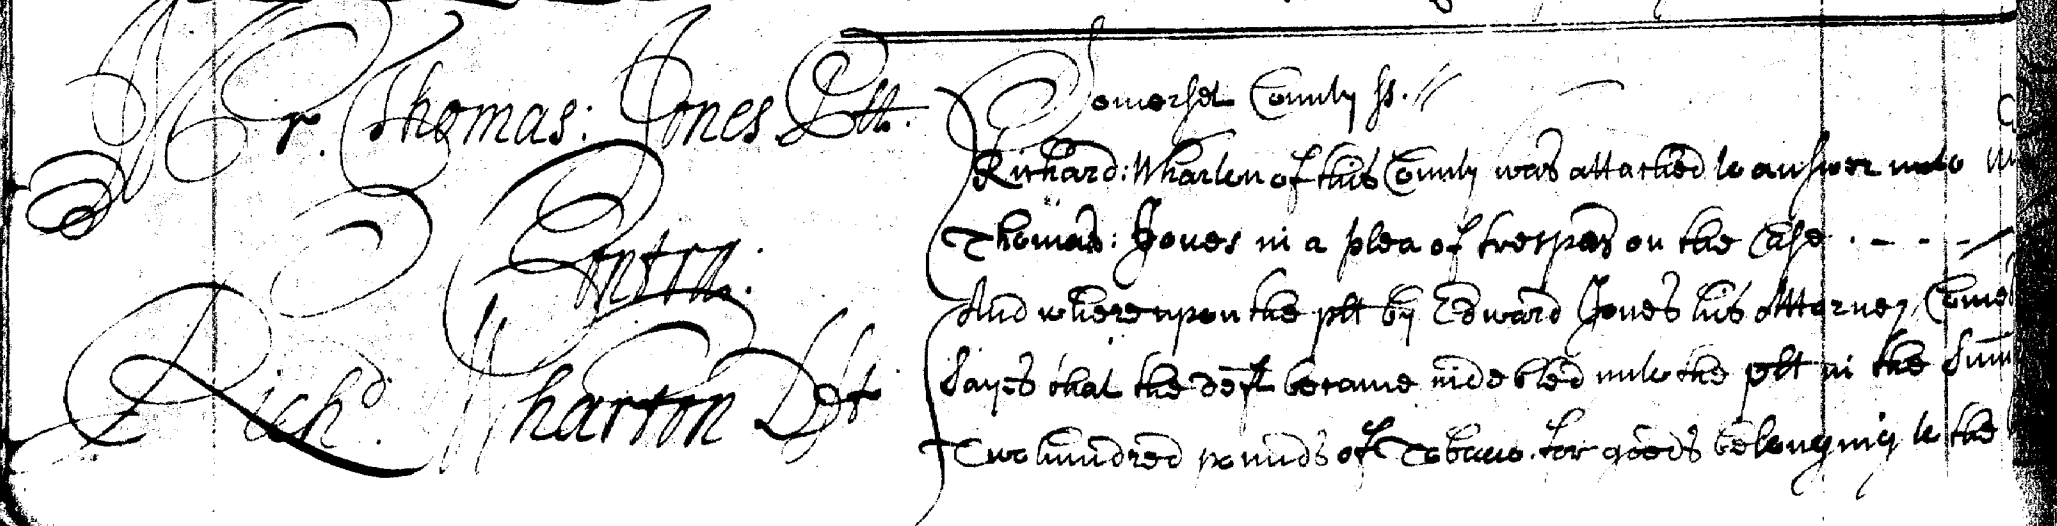 Mr. Thomas: Jones Plt.
Contra.
Richd. Wharton Dft
Somerset County ss. //
Richard: Wharton of this County was attached to answer unto
Thomas: Jones in a plea of trespas on the Case . - - -
And whereupon the plt by Edward Jones his Attorney Comes
Sayes that the deft became indebted unto the plt in the Sum
Two hundred pounds of Tobacco. for goods belonging to the